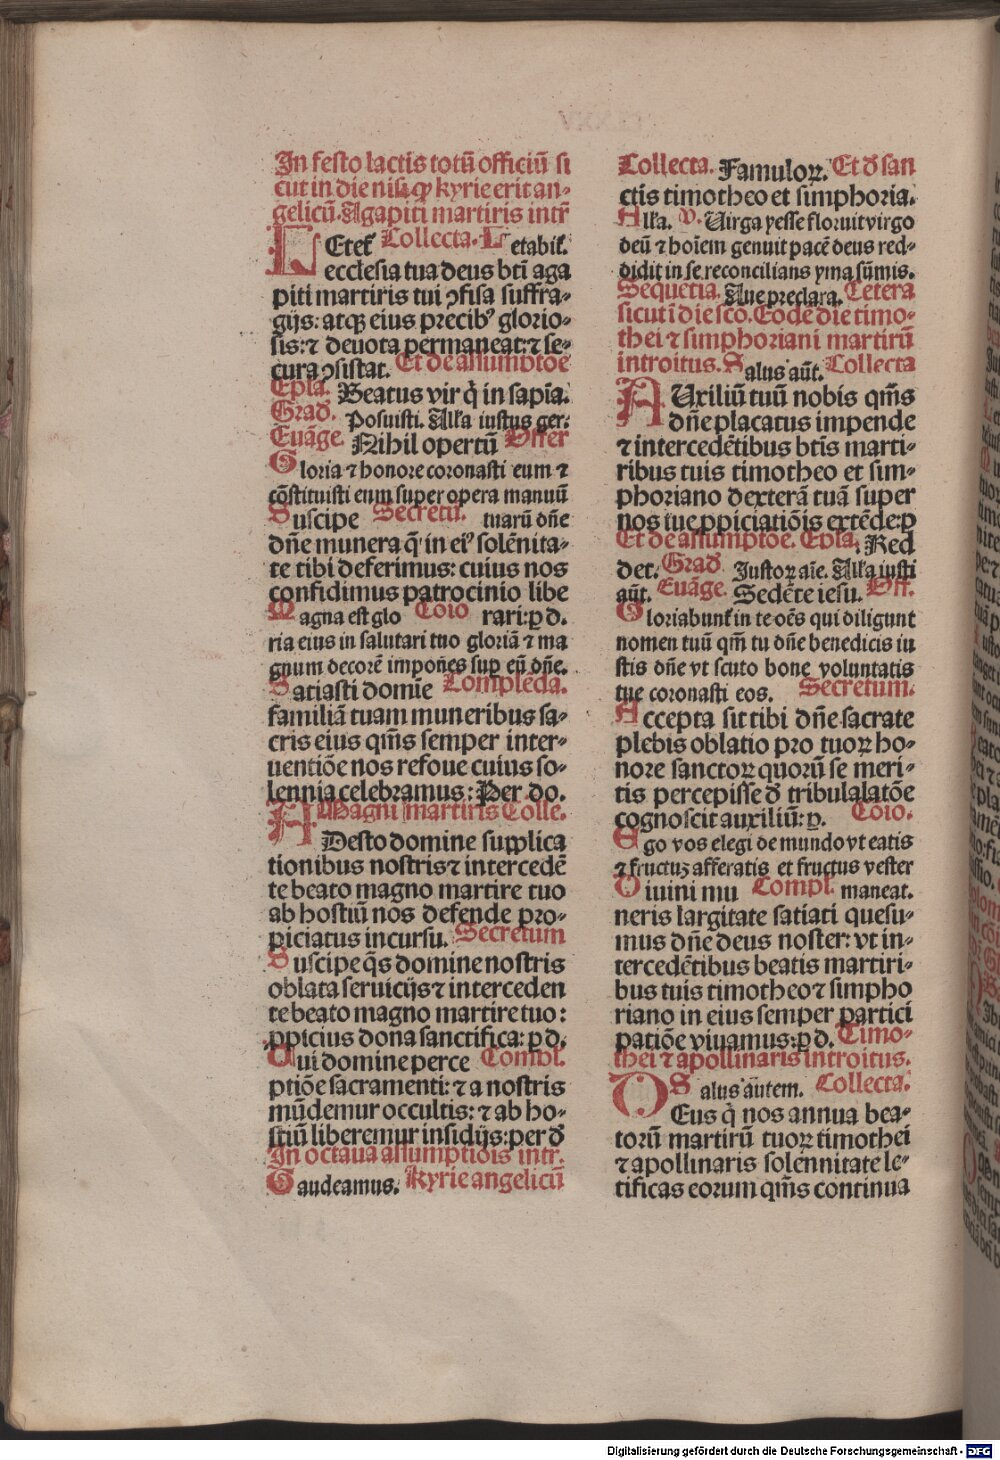 In festo lactis totũ officiũ si
cut in die nisi ꝙ kyrie erit an⸗
gelicũ. Agapiti martiris intr̃
LEtet̃ Collecta. Letabil̃.
ecclesia tua deus bt̃i aga
piti martiris tui ꝯfisa suffra⸗
gijs: atqꝫ eius precibꝰ glorio⸗
sis: ⁊ deuota permaneat: ⁊ se⸗
cura ꝯsistat. Et de assumptõe
Epl̃a. Beatus vir q̃ in sapĩa.
Grad̃. Posuisti. All̃a iustus ger.
Euãge. Nihil opertũ Offer
Gloria ⁊ honore coronasti eum ⁊
cõstituisti eum super opera manuũ
Suscipe Secretũ. tuarũ dñe
dñe munera q̃ in eiꝰ solẽnita⸗
te tibi deferimus: cuius nos
confidimus patrocinio libe
Magna est glo Cõio rari: p d.
ria eius in salutari tuo gloriã ⁊ ma
gnum decorẽ impones sup eũ dñe.
Satiasti domĩe Complẽda.
familiã tuam muneribus sa⸗
cris eius qm̃s semper inter⸗
uentiõe nos refoue cuius so⸗
lennia celebramus: Per do.
Magni martiris Colle.
ADesto domine supplica
tionibus nostris ⁊ intercedẽ
te beato magno martire tuo
ab hostiũ nos defende pro⸗
piciatus incursu. Secretum
Suscipe q̃s domine nostris
oblata seruicijs ⁊ interceden
te beato magno martire tuo:
ꝓpicius dona sanctifica: p d.
Qui domine perce Compl̃.
ptiõe sacramenti: ⁊ a nostris
mũdemur occultis: ⁊ ab ho⸗
stiũ liberemur insidijs: per d̃
In octaua assumptiõis intr.
Gaudeamus. Kyrie angelicũ
Collecta. Famuloꝝ. Et d̃ san
ctis timotheo et simphoria.
All̃a. v. Uirga yesse floruit virgo
deũ ⁊ hoĩem genuit pacẽ deus red⸗
didit in se reconcilians yma sũmis.
Sequẽtia. Aue preclara. Cetera
sicut ĩ die sc̃o. Eodẽ die timo⸗
thei ⁊ simphoriani martirũ
introitus. Salus aũt. Collecta
AUxiliũ tuũ nobis qm̃s
dñe placatus impende
⁊ intercedẽtibus bt̃is marti⸗
ribus tuis timotheo et sim⸗
phoriano dexterã tuã super
nos tue ꝓpiciatiõis extẽde: p
Et de assumptõe. Epl̃a. Red
det. Grad̃. Justoꝝ aĩe. All̃a iusti
aũt. Euãge. Sedẽte iesu. Off.
Gloriabunt̃ in te oẽs qui diligunt
nomen tuũ qm̃ tu dñe benedicis iu
stis dñe vt scuto bone voluntatis
tue coronasti eos. Secretum.
Accepta sit tibi dñe sacrate
plebis oblatio pro tuoꝝ ho⸗
nore sanctoꝝ quorũ se meri⸗
tis percepisse d̃ tribulalatõe
cognoscit auxiliũ: p. Cõio.
Ego vos elegi de mundo vt eatis
⁊ fructuꝫ afferatis et fructus vester
Diuini mu Compl̃. maneat.
neris largitate satiati quesu⸗
mus dñe deus noster: vt in⸗
tercedẽtibus beatis martiri⸗
bus tuis timotheo ⁊ simpho
riano in eius semper partici
patiõe viuamus: p d. Timo⸗
thei ⁊ apollinaris introitus.
Salus aũtem. Collecta.
DEus q̃ nos annua bea⸗
torũ martirũ tuoꝝ timothei
⁊ apollinaris solennitate le⸗
tificas eorum qm̃s continua
Digitalisierung gefördert durch die Deutsche Forschungsgemeinschaft - DFG